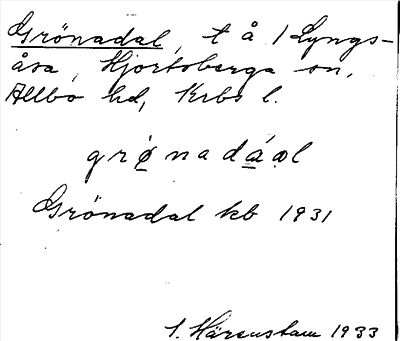 Grönadal, t å 1 Lyngs-
åsa, Hjortsberga sn,
Allbo hd, Krbs l.
grø̀nadáal
Grönadal kb 1931
S. Härenstam 1933